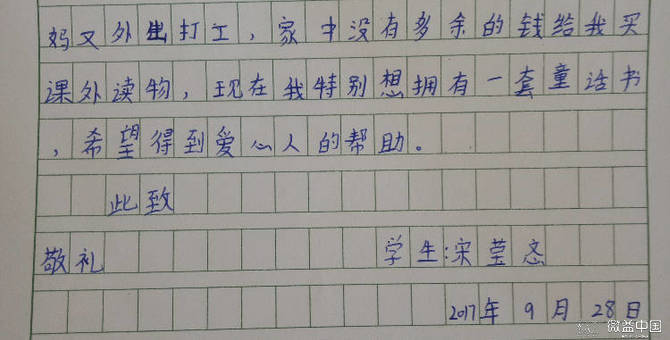 妈又外出打工，家中没有多余的钱给我买
课外读物，现在我特别想拥有一套童话书
，希望得到爱心人的帮助。
此致
敬礼 学生:宋莹
2017年9月28日
微益中国